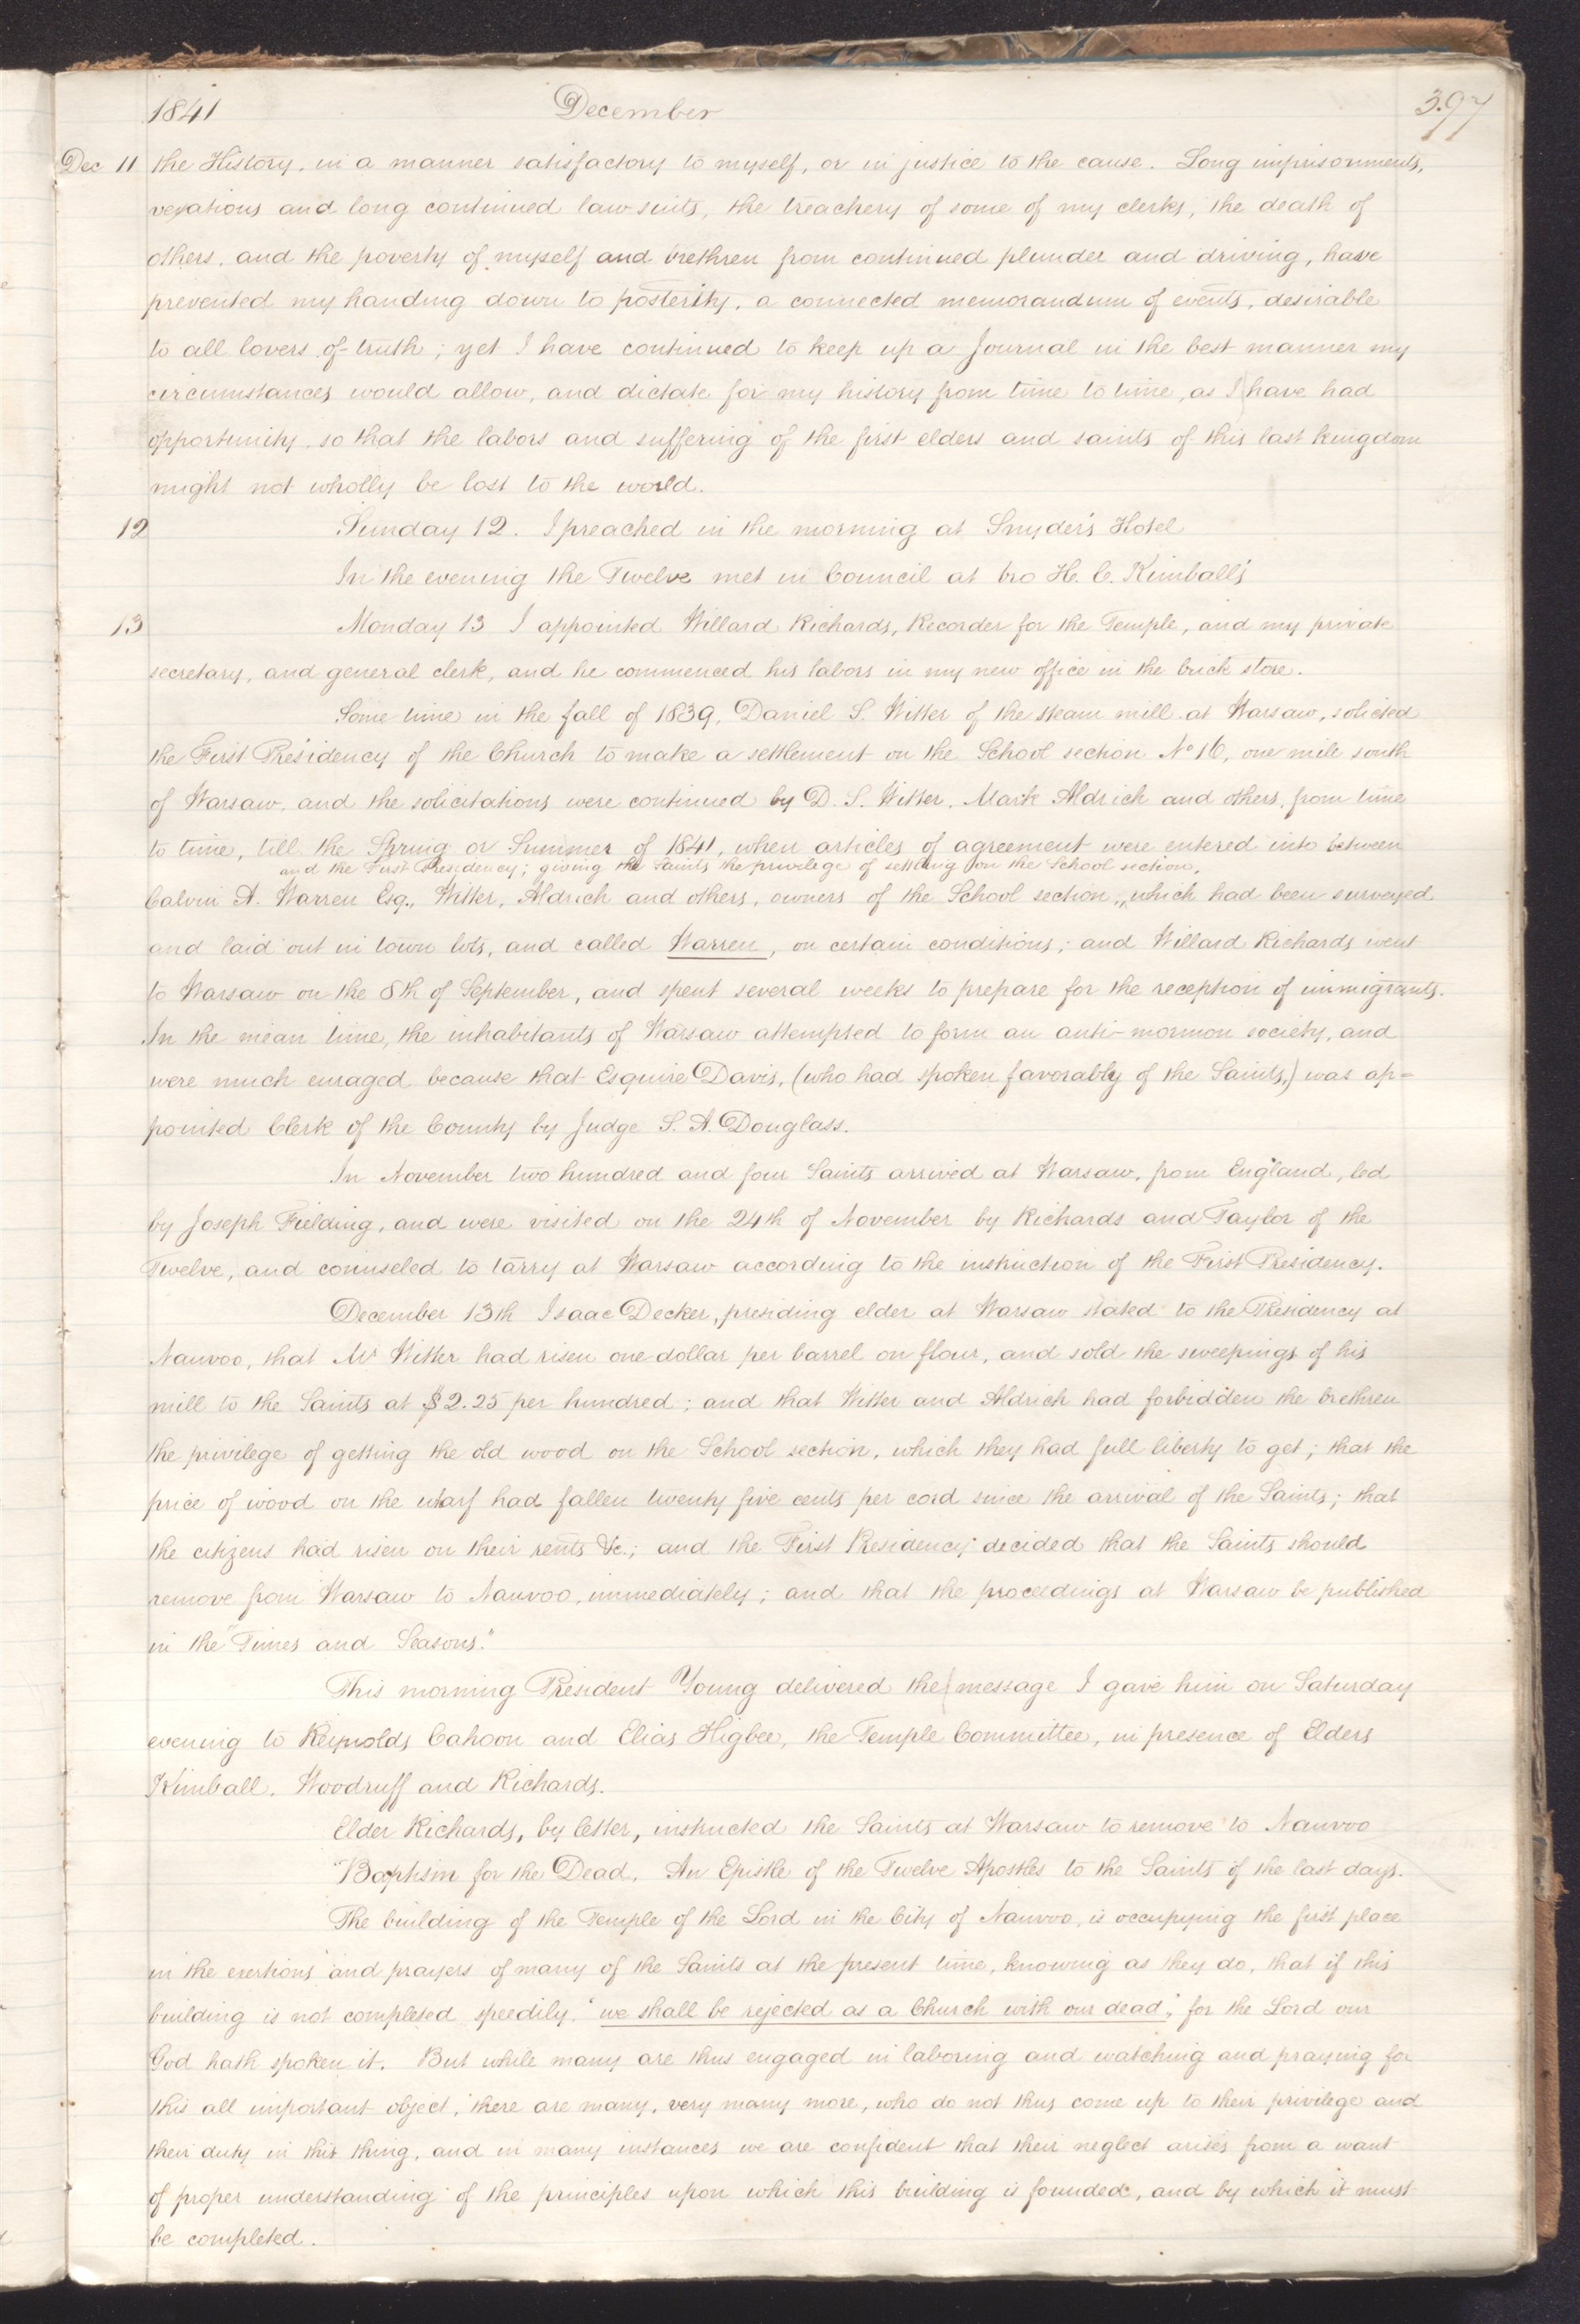 1841 December 397
Dec 11 the History, in a manner satisfactory to myself, or in justice to the cause. Long imprisonments,
vexatious and long continued law suits, the treachery of some of my clerks, the death of
others, and the poverty of myself and brethren from continued plunder and driving, have
prevented my handing down to posterity, a connected memorandum of events, desirable
to all lovers of truth; yet I have continued to keep up a Journal in the best manner my
circumstances would allow, and dictate for my history from time to time, as I have had
opportunity, so that the labors and suffering of the first elders and saints of this last kingdom
might not wholly be lost to the world.
12 Sunday 12. I preached in the morning at Snyder's Hotel
In the evening the Twelve met in Council at bro H. C. Kimball's
13 Monday 13 I appointed Willard Richards, Recorder for the Temple, and my private
secretary, and general clerk, and he commenced his labors in my new office in the brick store.
Some time in the fall of 1839, Daniel S. Witter of the steam mill at Warsaw, solicited
the First Presidency of the Church to make a settlement on the School section No 16, one mile south
of Warsaw, and the solicitations were continued by D. S. Witter, Mark Aldrich and others, from time
to time, till the Spring or Summer of 1841, when articles of agreement were entered into between
and the First Presidency; giving the Saints the privilege of settling on the School section,
Calvin A. Warren Esq., Witter, Aldrich and others, owners of the School section, which had been surveyed
and laid out in town lots, and called Warren, on certain conditions; and Willard Richards went
to Warsaw on the 8th of September, and spent several weeks to prepare for the reception of immigrants.
In the mean time, the inhabitants of Warsaw attempted to form an anti-mormon society, and
were much enraged because that Esquire Davis, (who had spoken favorably of the Saints,) was ap=
pointed Clerk of the County by Judge S. A. Douglass.
In November two hundred and four Saints arrived at Warsaw, from England, led
by Joseph Fielding, and were visited on the 24th of November by Richards and Taylor of the
Twelve, and counseled to tarry at Warsaw according to the instruction of the First Presidency.
December 13th Isaac Decker, presiding elder at Warsaw stated to the Presidency at
Nauvoo, that Mr Witter had risen one dollar per barrel on flour, and sold the sweepings of his
mill to the Saints at $2.25 per hundred; and that Witter and Aldrich had forbidden the brethren
the privilege of getting the old wood on the School section, which they had full liberty to get; that the
price of wood on the wharf had fallen twenty five cents per cord since the arrival of the Saints; that
the citizens had risen on their rents &c.; and the First Presidency decided that the Saints should
remove from Warsaw to Nauvoo, immediately; and that the proceedings at Warsaw be published
in the "Times and Seasons."
This morning President Young delivered the message I gave him on Saturday
evening to Reynolds Cahoon and Elias Higbee, the Temple Committee, in presence of Elders
Kimball, Woodruff and Richards.
Elder Richards, by letter, instructed the Saints at Warsaw to remove to Nauvoo
"Baptism for the Dead. An Epistle of the Twelve Apostles to the Saints of the last days.
The building of the Temple of the Lord in the City of Nauvoo, is occupying the first place
in the exertions and prayers of many of the Saints at the present time, knowing as they do, that if this
building is not completed speedily, "we shall be rejected as a Church with our dead," for the Lord our
God hath spoken it. But while many are thus engaged in laboring and watching and praying for
this all important object, there are many, very many more, who do not thus come up to their privilege and
their duty in this thing, and in many instances we are confident that their neglect arises from a want
of proper understanding of the principles upon which this building is founded, and by which it must
be completed.